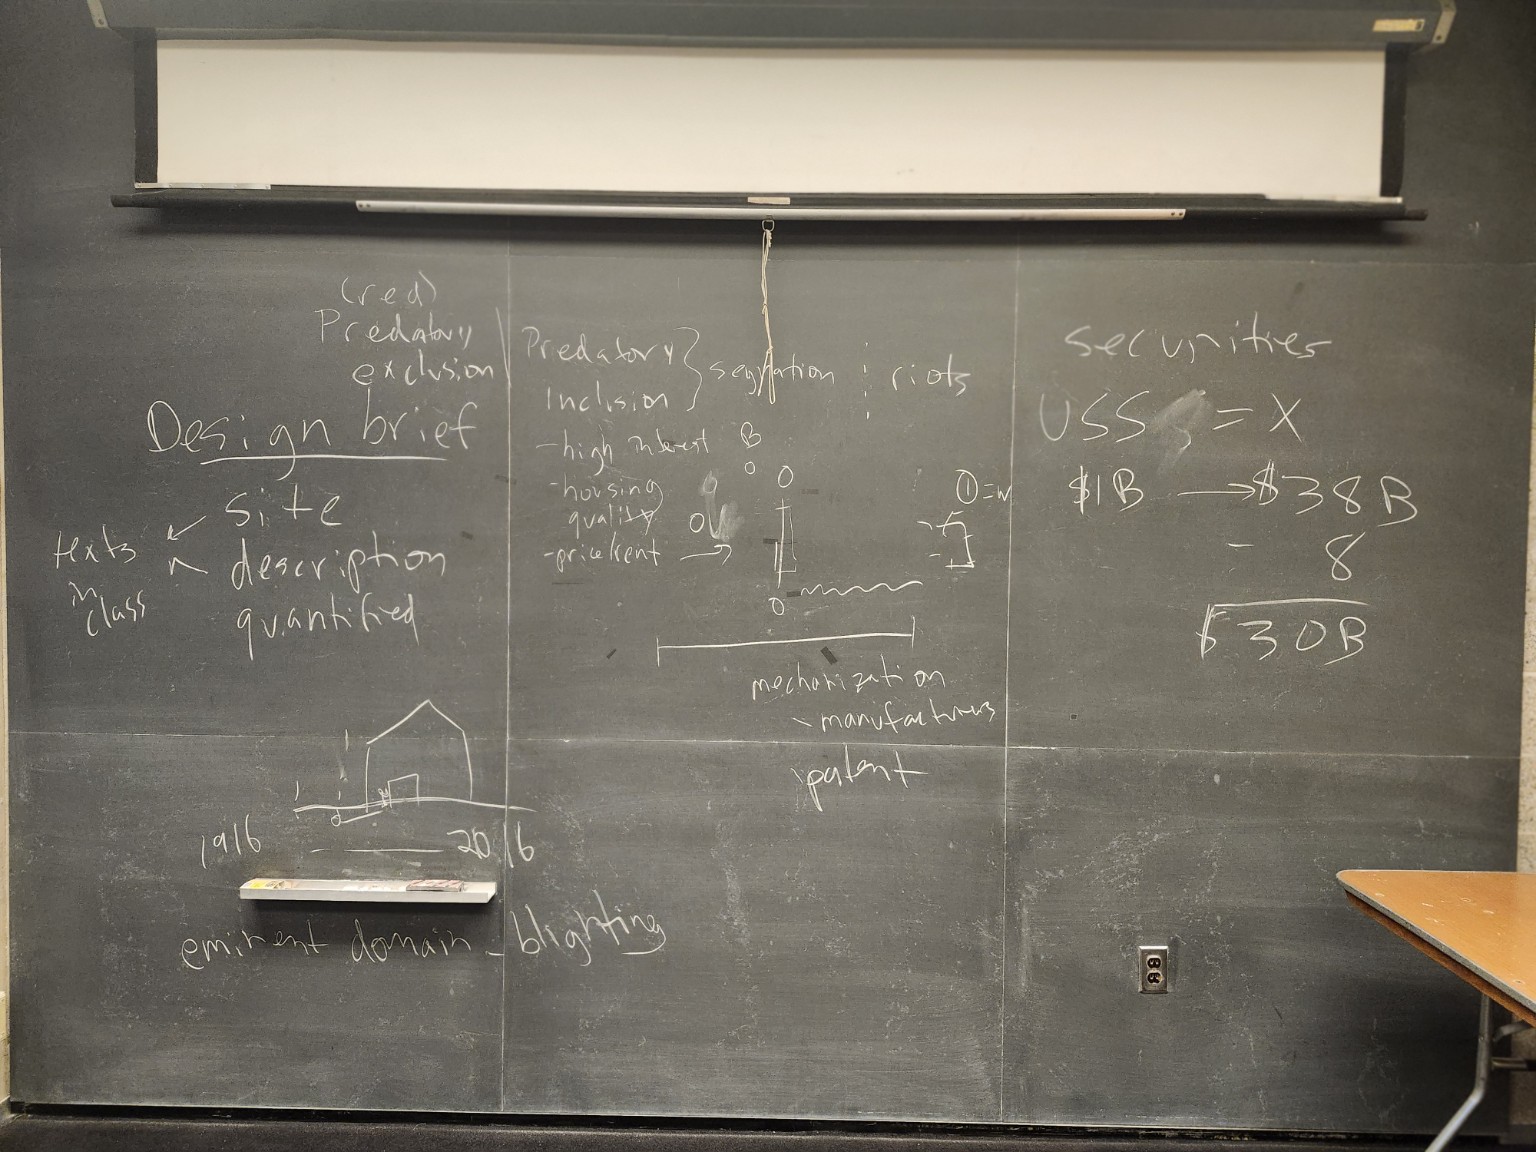 (red)
Predatory
exclusion
Design brief
site
description
quantified
texts
in
class
1916 — 2016
eminent domain - blighting
Predatory
Inclusion
segration
riots
- high interest
- housing
quality
- price/rent
B
mechanization
- manufacturers
patent
securities
USS = X
$1B → $38B
- 8
$30B